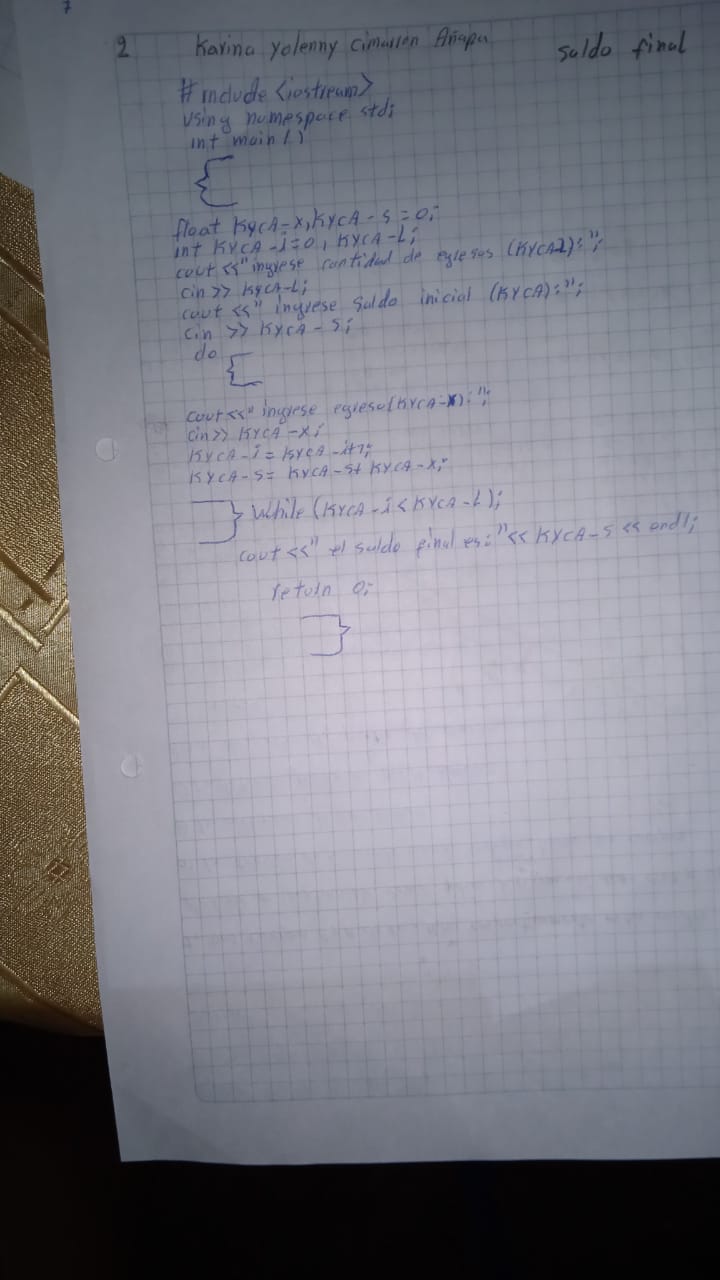 2 Karina yolenny Cimarron Añapa saldo final
# include <iostream>
using namespace std;
int main ()
{
float KYCA-X, KYCA-S = 0;
int KYCA-i=0, KYCA-L;
cout <<"ingrese cantidad de egresos (KYCAL):";
cin >> KYCA-L;
cout <<" ingrese Saldo inicial (KYCA):";
cin >> KYCA-S;
do
{
cout <<" ingrese egreso(KYCA-X):";
cin >> KYCA-X;
KYCA-i = KYCA-i+1;
KYCA-S= KYCA-S+ KYCA-X;
} While (KYCA-i < KYCA-L);
cout <<" el saldo final es:"<< KYCA-S << endl;
return 0;
}